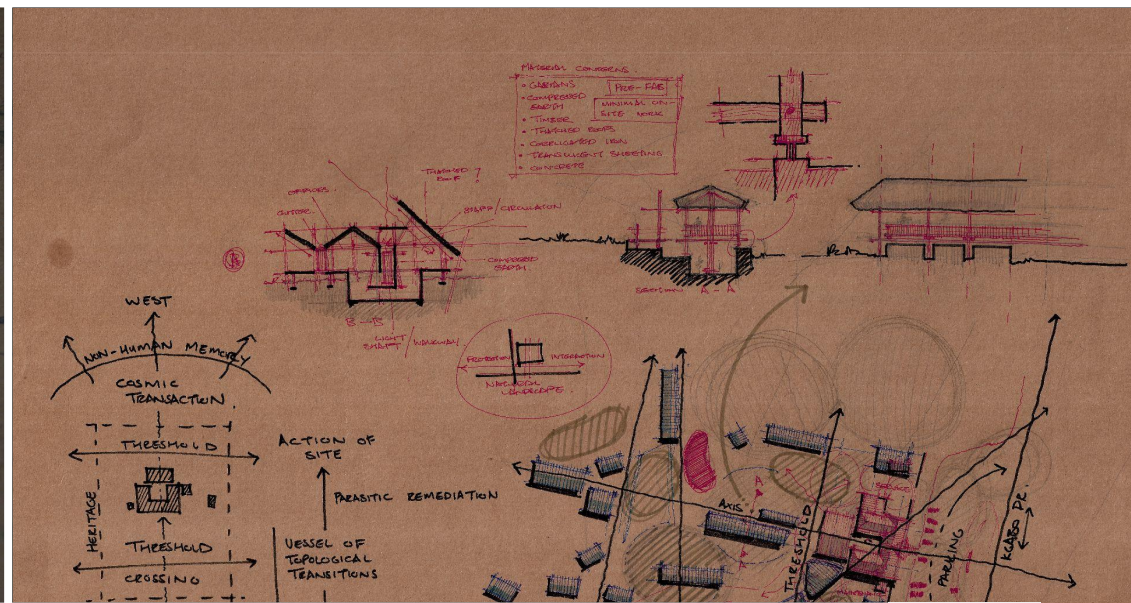 MATERIAL CONCERNS.
• GABIANS
PRE-FAB
• COMPRESSED
EARTH
MINIMAL ON-
SITE WORK
• TIMBER
• THATCHED ROOFS
• CORRUGATED IRON
• TRANSLUCENT SHEETING
• CONCRETE
THATCHED
ROOF ?
OFFICES.
GUTTER.
STAFF/CIRCULATION
COMPRESSED
EARTH.
B-B
LIGHT
SHAFT/WALKWAY
SECTION A-A
PROTECTION
INTERACTION
NATURAL
LANDSCAPE.
WEST
NON-HUMAN MEMORY
COSMIC
TRANSACTION
THRESHOLD
HERITAGE
THRESHOLD
CROSSING
ACTION OF
SITE
PARASITIC REMEDIATION
VESSEL OF
TOPOLOGICAL
TRANSITIONS
A
AXIS
A
THRESHOLD
SERVICE
PARKING
KGABO DR.